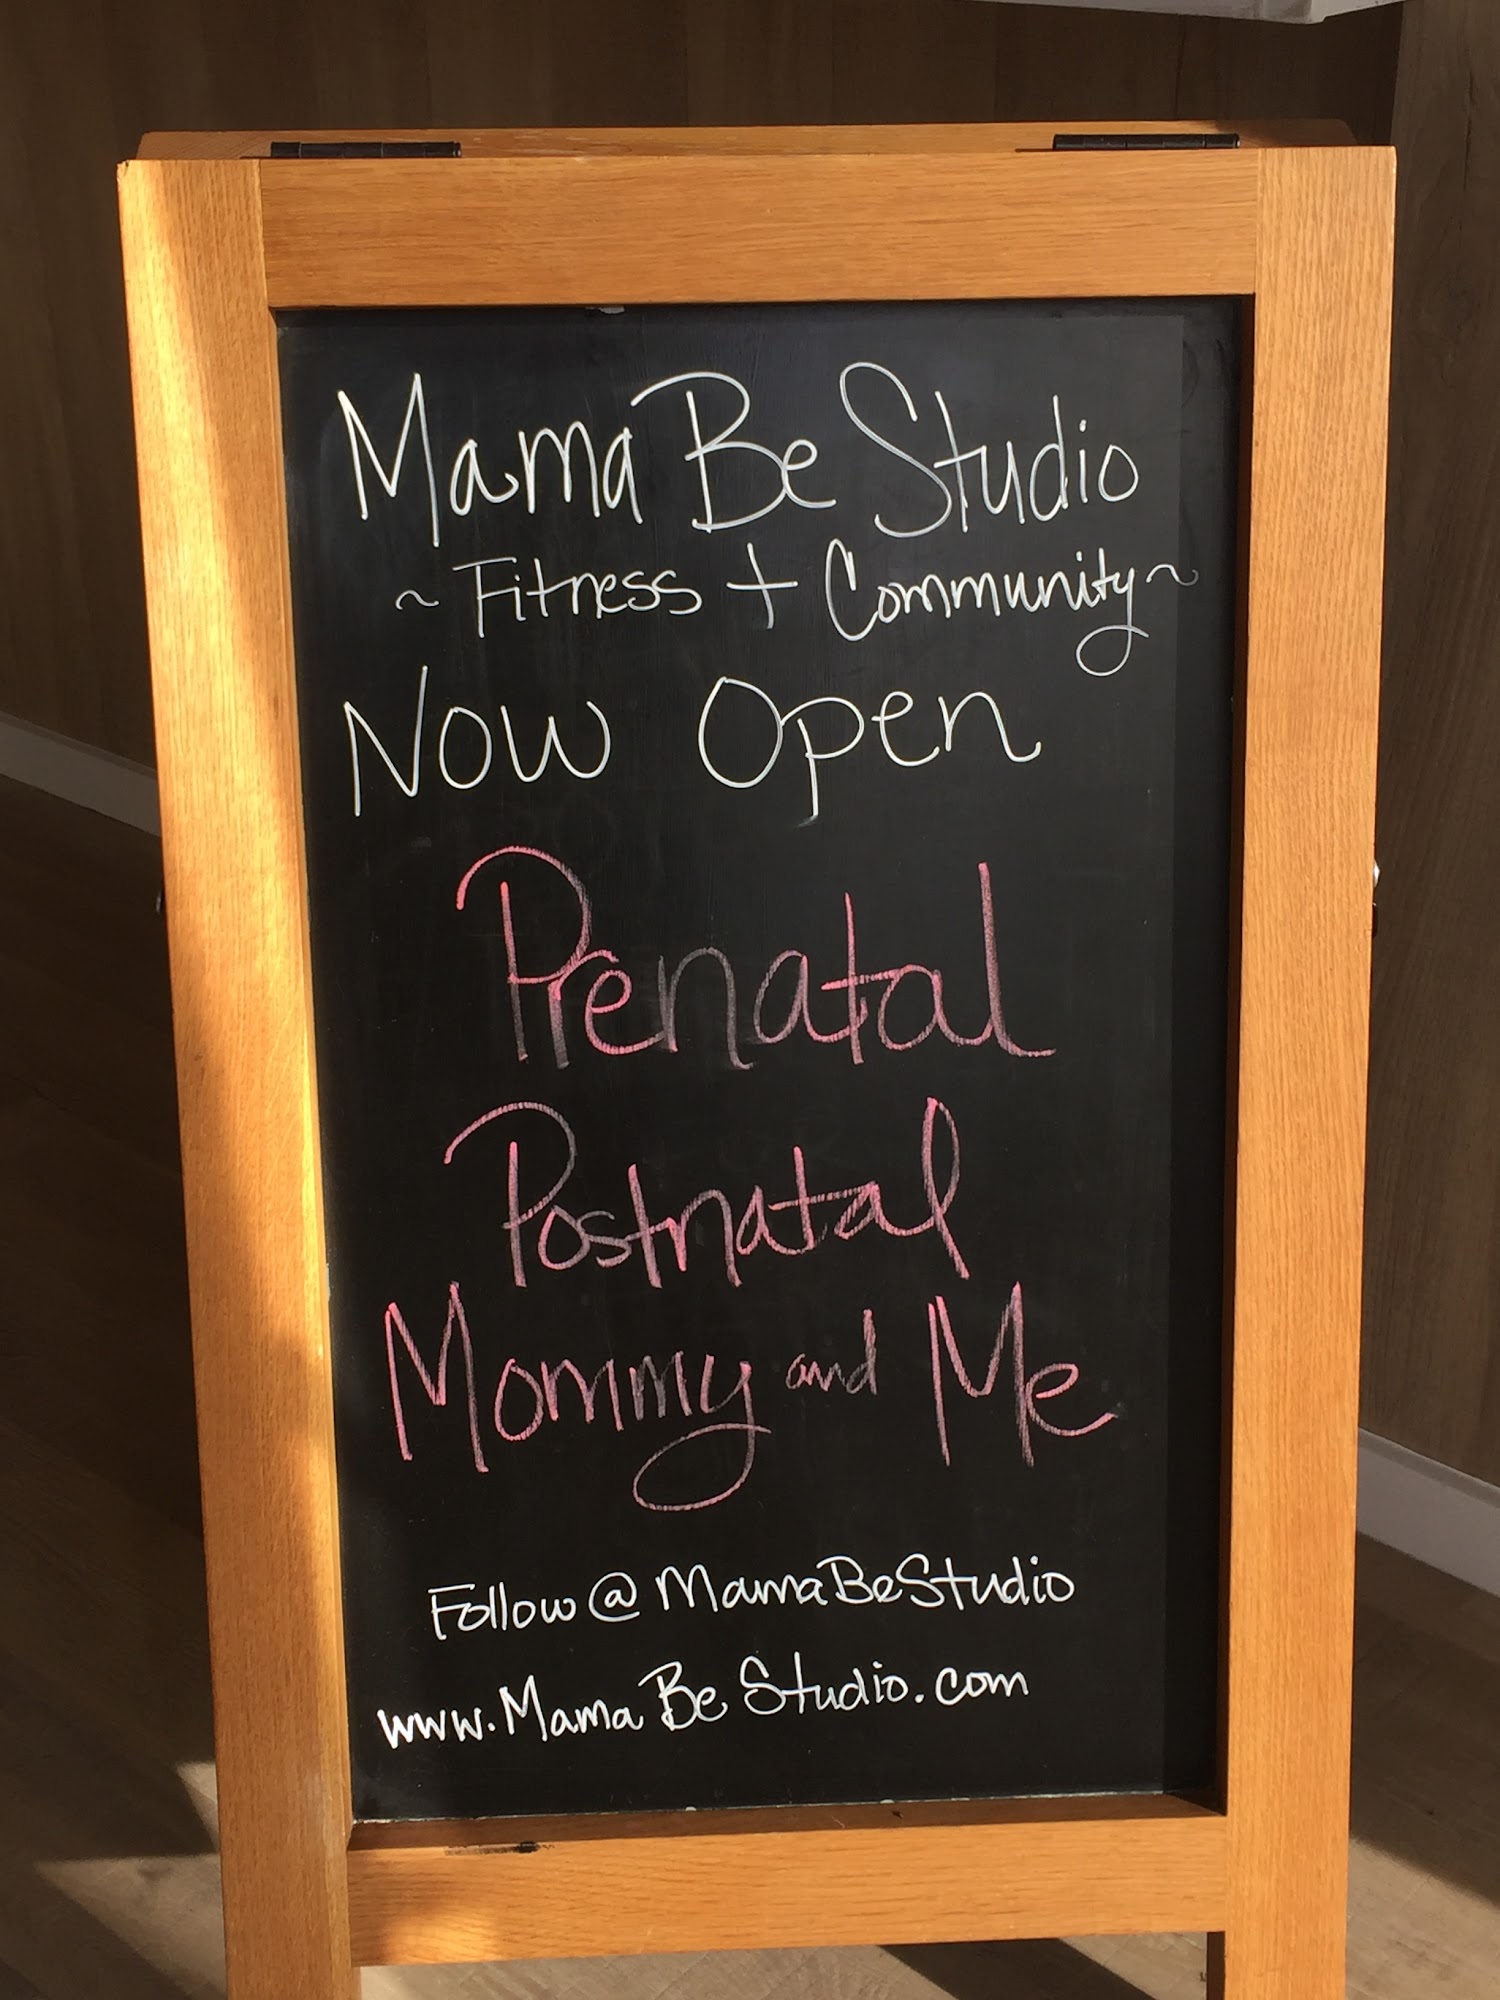 Mama Be Studio
~ Fitness + Community ~
Now Open
Prenatal
Postnatal
Mommy and Me
Follow @MamaBeStudio
www.MamaBeStudio.com